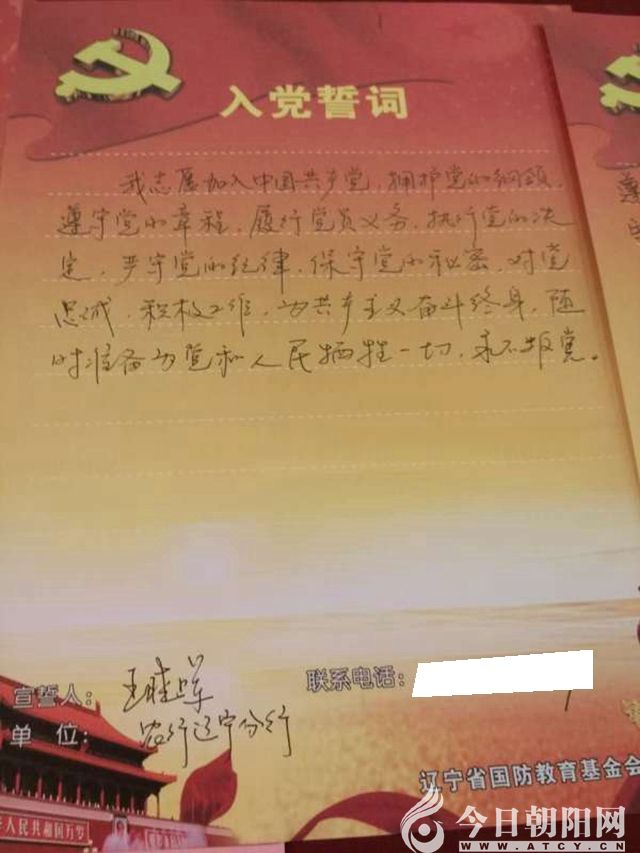 入党誓词
我志愿加入中国共产党，拥护党的纲领，
遵守党的章程，履行党员义务，执行党的决
定，严守党的纪律，保守党的秘密，对党
忠诚，积极工作，为共产主义奋斗终身，随
时准备为党和人民牺牲一切，永不叛党。
宣誓人：王
联系电话：
单位：农行辽宁分行
辽宁省国防教育基金会
人民共和国万岁
今日朝阳网
WWW.ATCY.CN